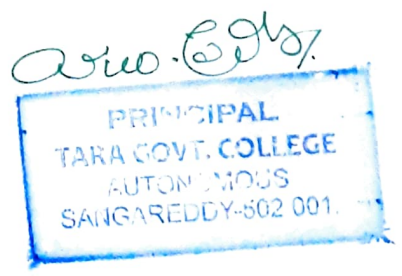 PRINCIPAL.
TARA GOVT. COLLEGE
AUTONOMOUS
SANGAREDDY-502 001.